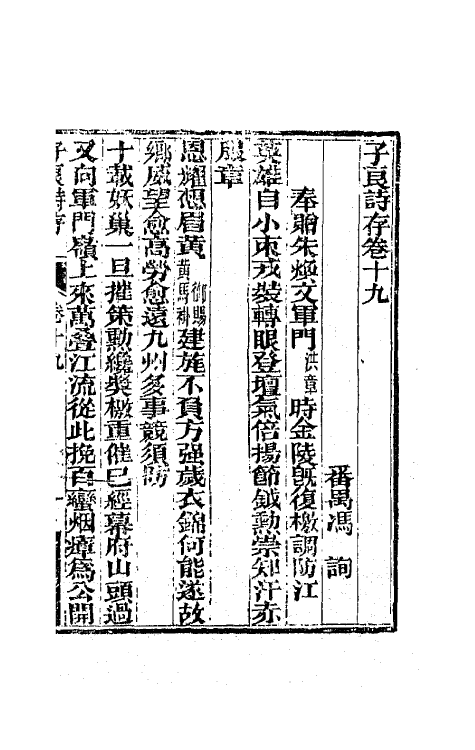 子良詩存卷十九
番禺馮 詢
奉贈朱煥文軍門洪章時金陵旣復檄調防江
英雄自小束戎裝轉眼登壇氣倍揚節鉞勳崇知汗赤
服章
恩耀想眉黃御賜黃馬褂建旄不負方强歲衣錦何能遂故
鄉威望愈高勞愈遠九州多事競須防
十載妖巢一旦摧策勳纔奬檄重催已經幕府山頭過
又向軍門嶺上來萬疊江流從此挽百蠻烟瘴爲公開
子良詩存 卷十九 一